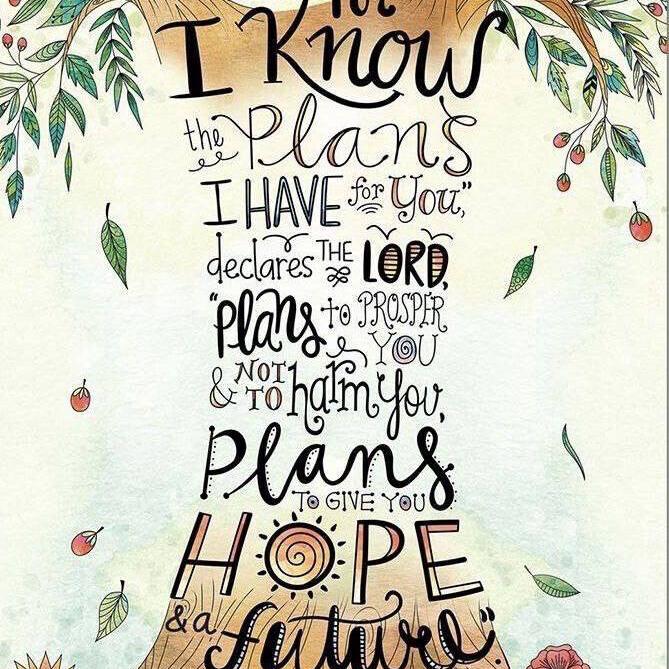 For
I Know
the Plans
I HAVE for You,"
declares THE LORD,
"Plans to PROSPER
YOU
& NOT TO harm You,
Plans
TO GIVE YOU
HOPE
& a future".